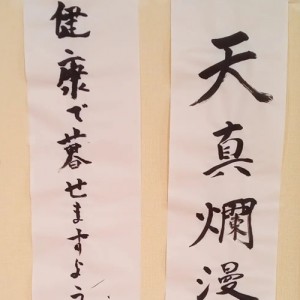 天真爛漫
健康で暮せますよう